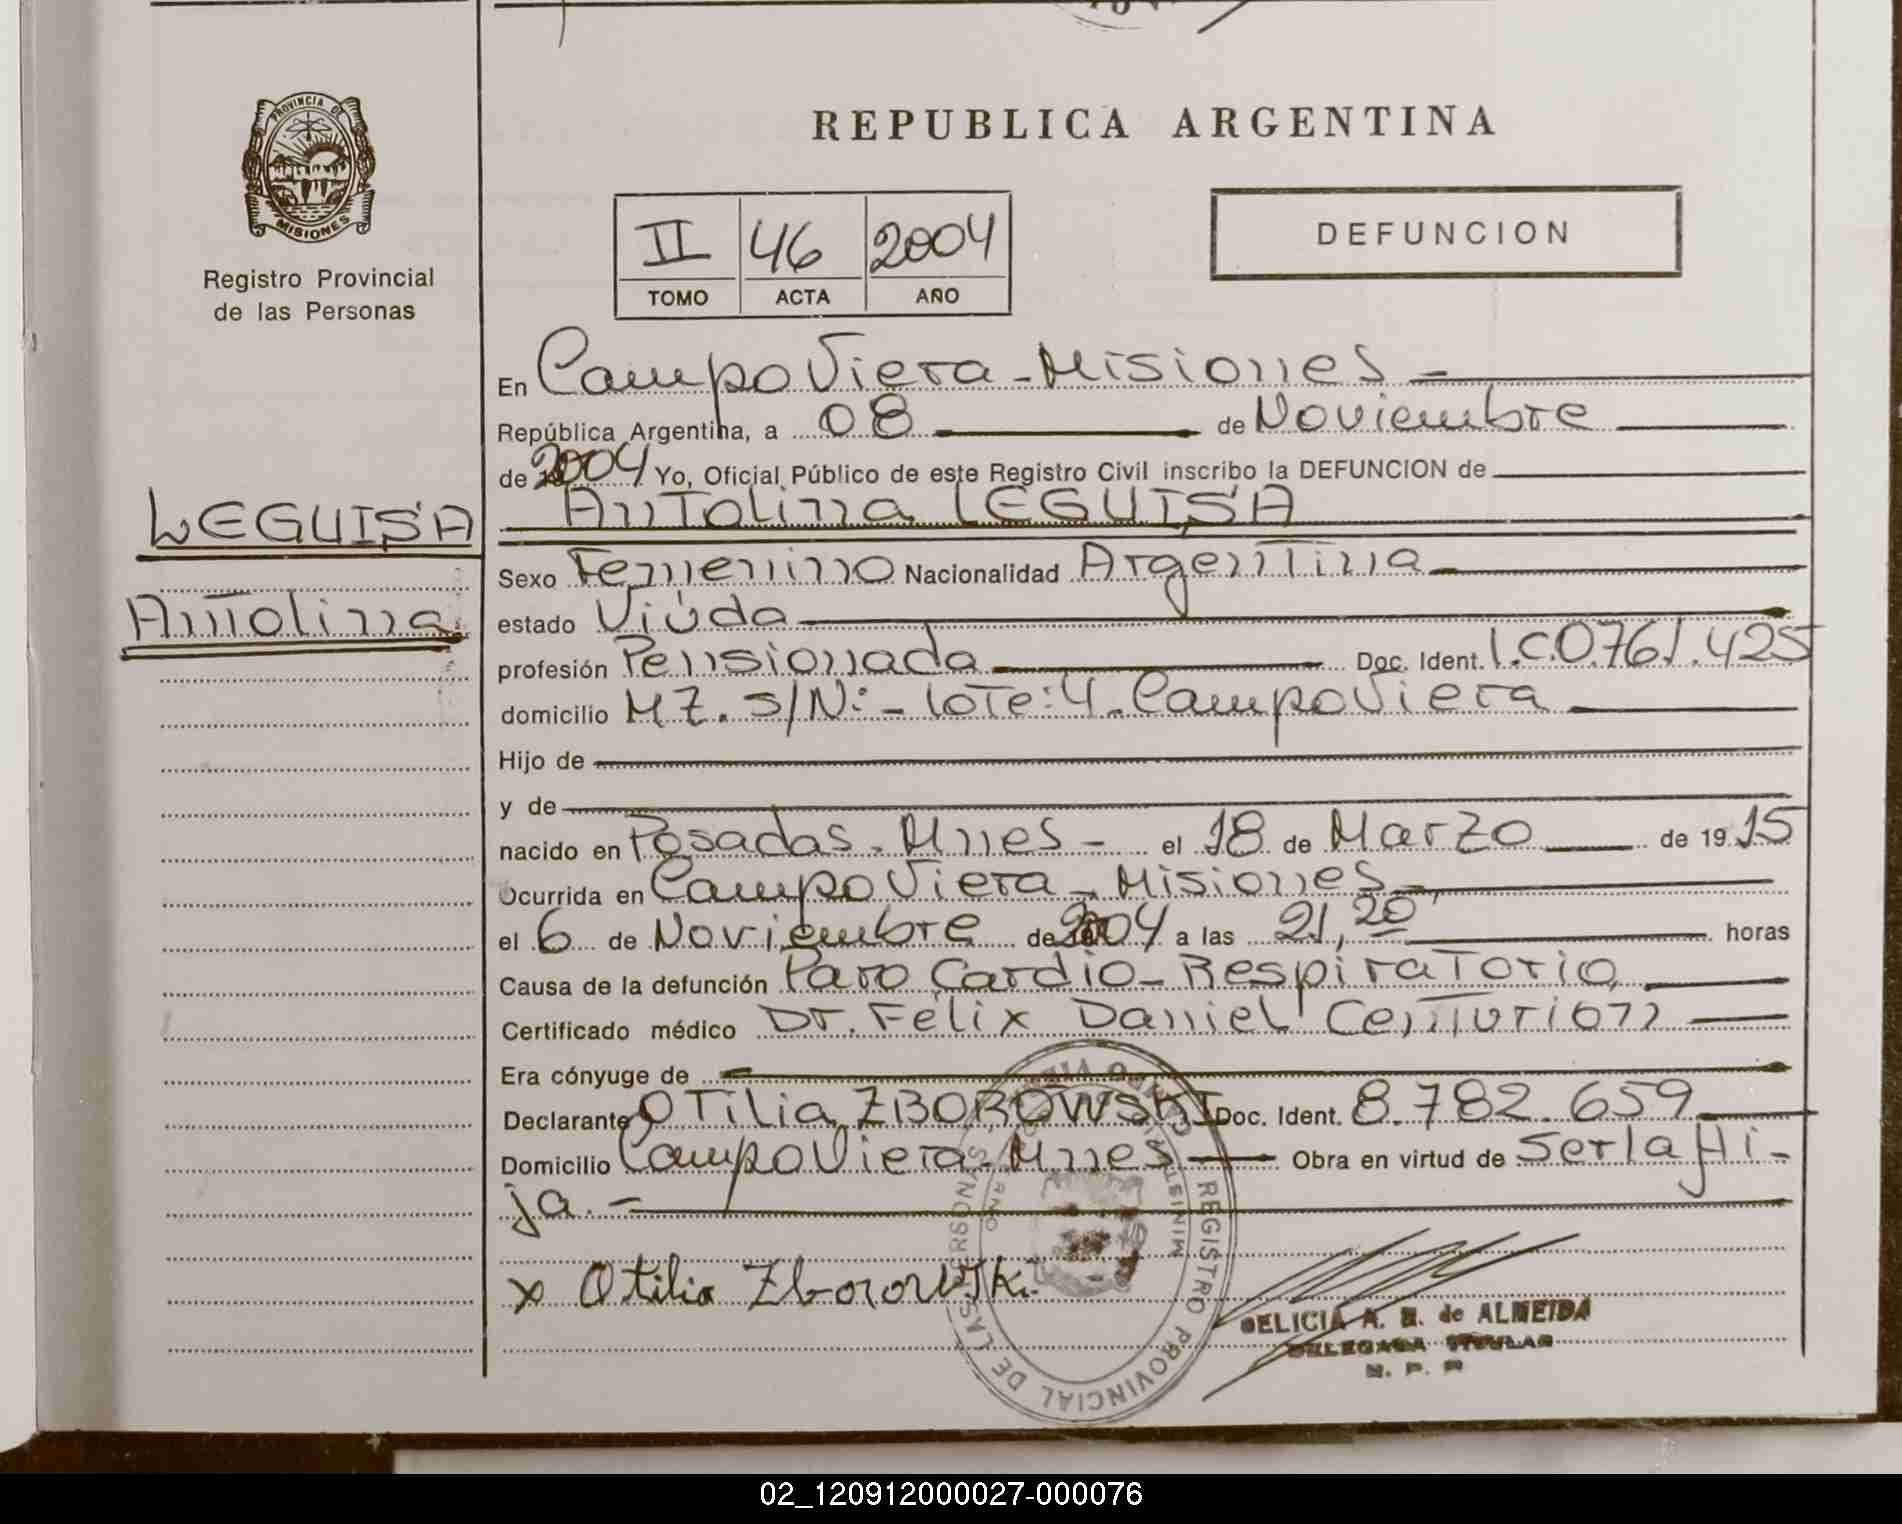 PROVINCIA DE
MISIONES
Registro Provincial
de las Personas
LEGUISA
Antolina
REPUBLICA ARGENTINA
II 46 2004
TOMO ACTA AÑO
DEFUNCION
En Campo Viera - Misiones -
República Argentina, a 08 de Noviembre
de 2004 Yo, Oficial Público de este Registro Civil inscribo la DEFUNCION de
Antolina LEGUISA
Sexo Femenino Nacionalidad Argentina
estado Viúda
profesión Pensionada Doc. Ident. l.C.0.761.425
domicilio MZ. S/N: - lote: 4 - Campo Viera
Hijo de
y de
nacido en Posadas - Mnes - el 18 de Marzo de 1915
Ocurrida en Campo Viera - Misiones -
el 6 de Noviembre de 2004 a las 21,20 horas
Causa de la defunción Paro Cardio - Respiratorio
Certificado médico Dr. Félix Daniel Centurión
Era cónyuge de
Declarante OTilia ZBOROWSKI Doc. Ident. 8.782.659
Domicilio Campo Viera - Mnes - Obra en virtud de Ser la Hi-
ja. -
x Otilia Zborowski
REGISTRO PROVINCIAL DE LAS PERSONAS
DELICIA A. de ALMEIDA
DELEGADA TITULAR
02_120912000027-000076